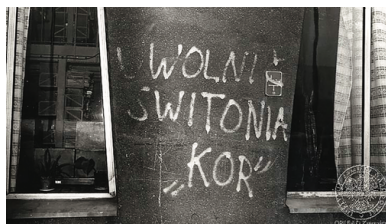 UWOLNIĆ
ŚWITONIA
„KOR”